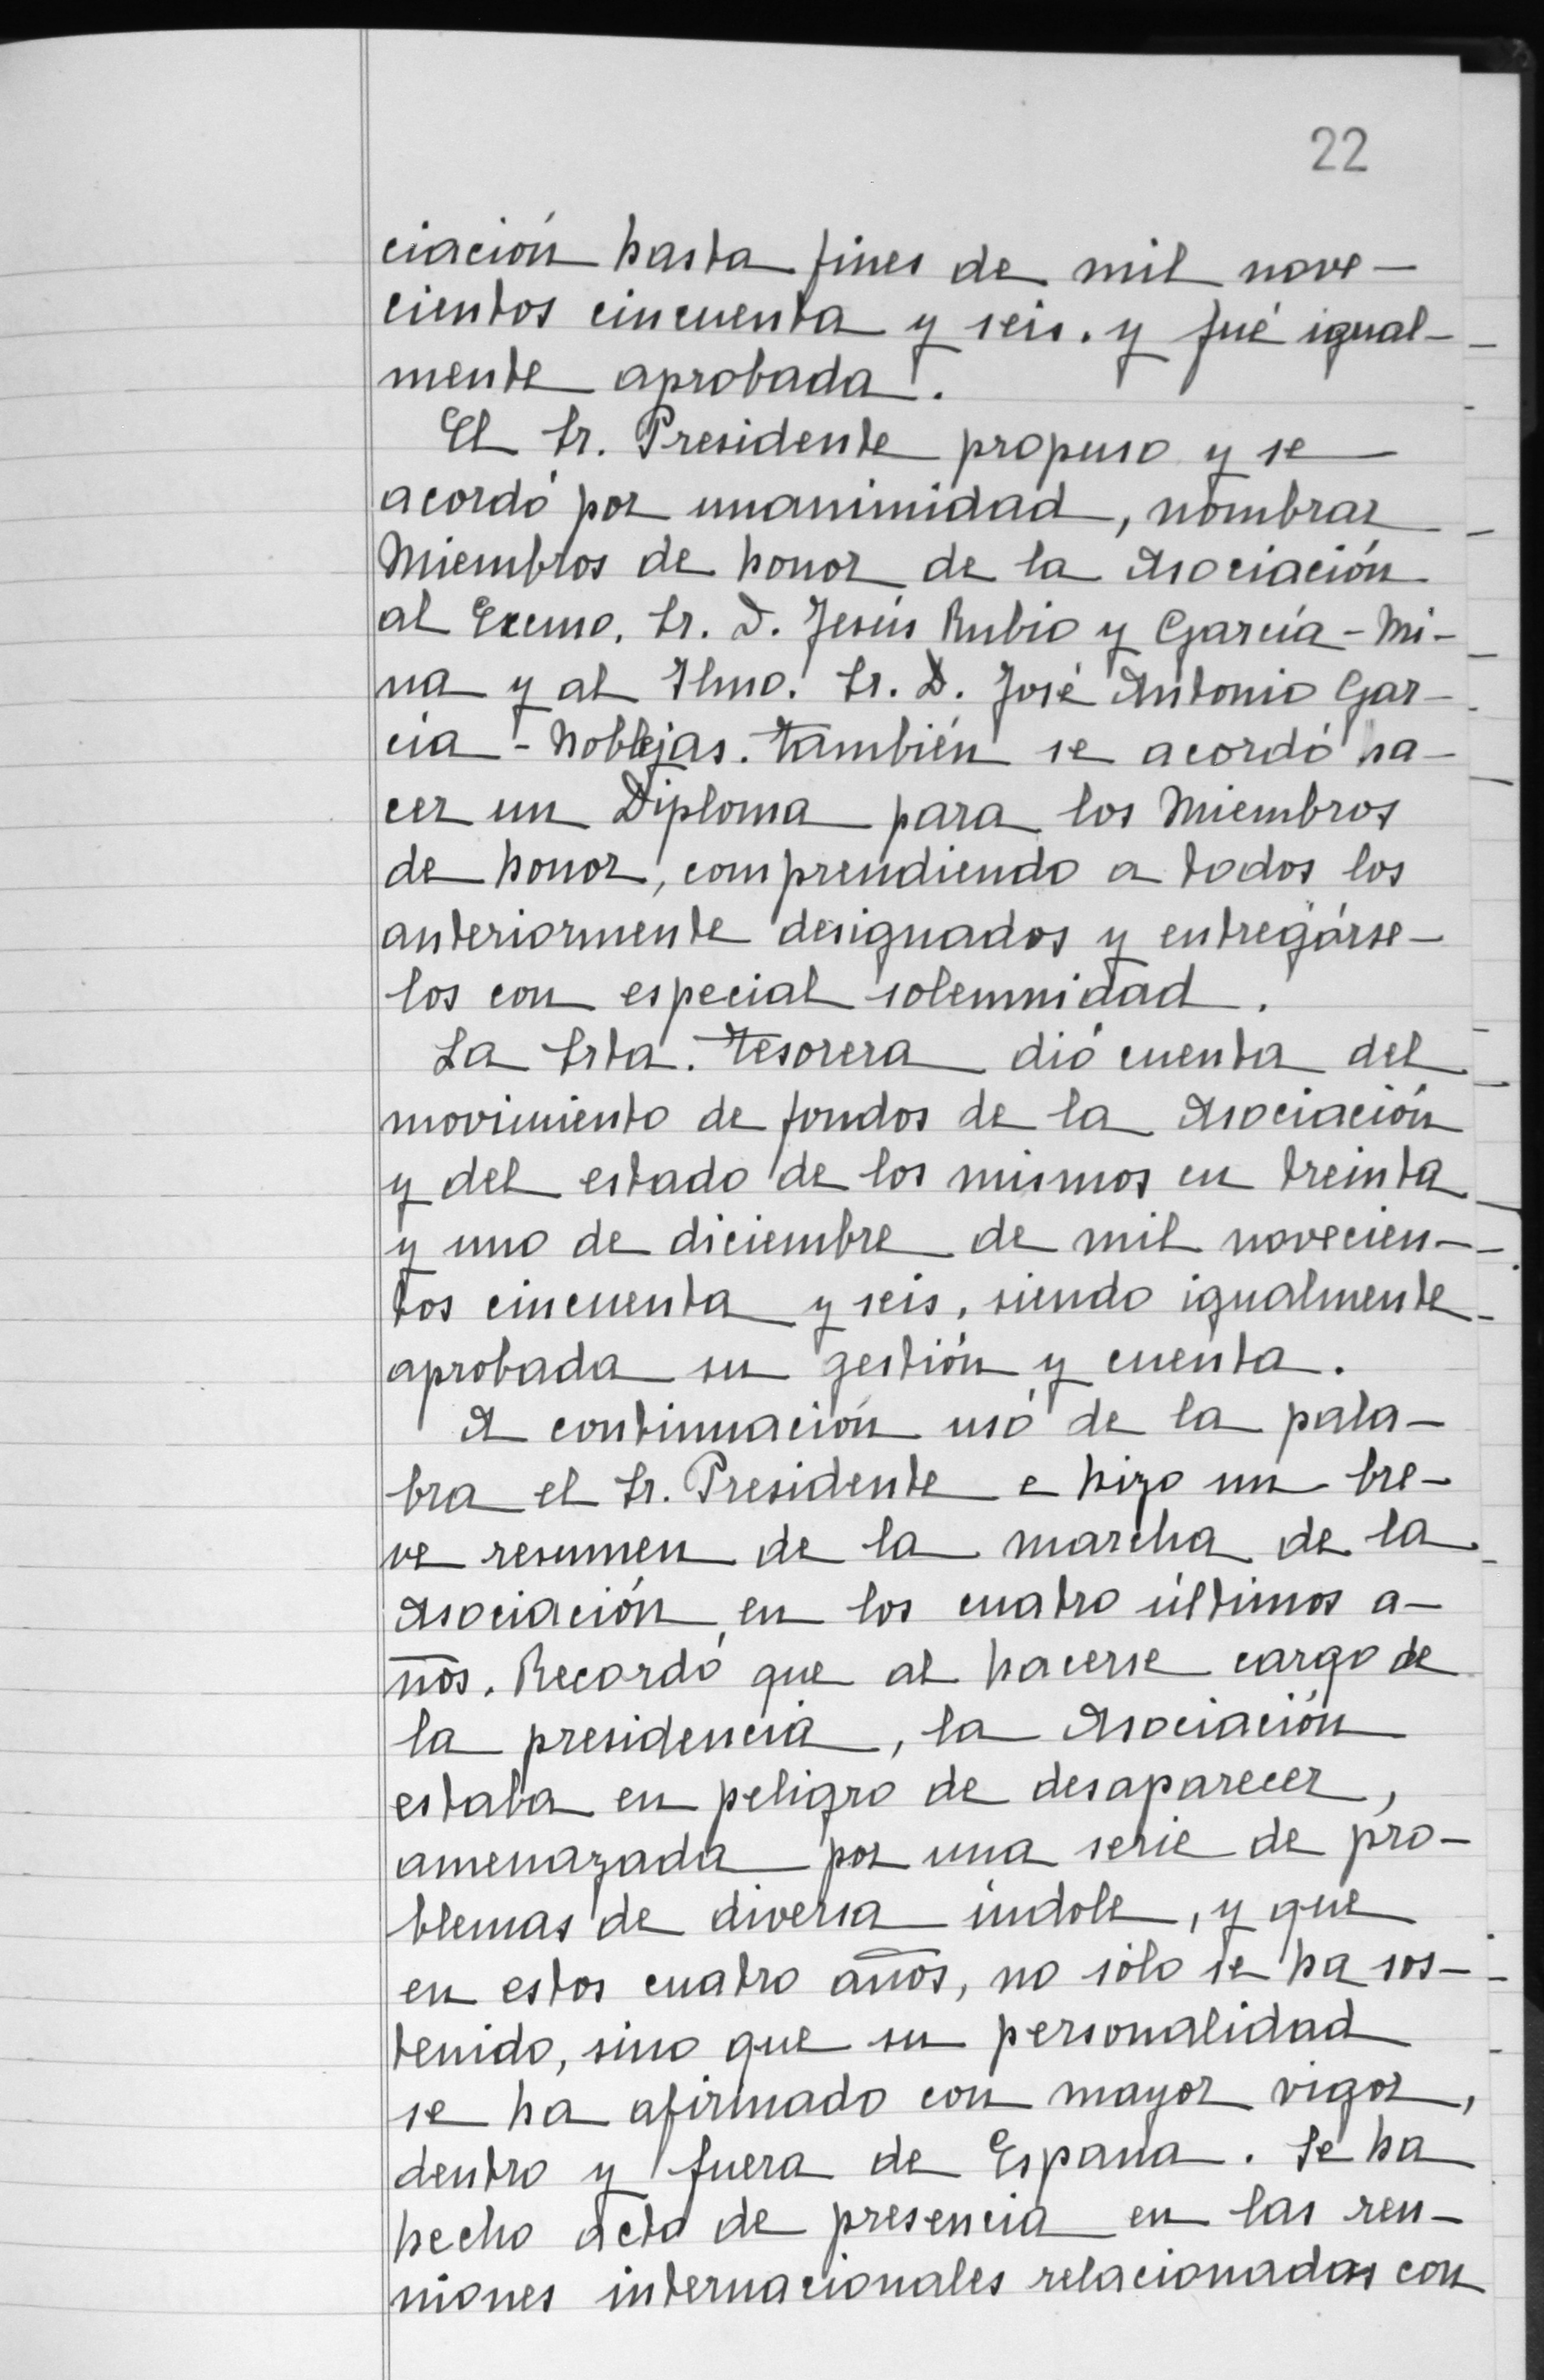 22
ciación hasta fines de mil nove-
cientos cincuenta y seis. y fué igual-
mente aprobada.
El Sr. Presidente propuso y se
acordó por unanimidad, nombrar
Miembros de honor de la Asociación
al Excmo. Sr. D. Jesús Rubio y García-Mi-
na y al Ilmo. Sr. D. José Antonio Gar-
cía-Noblejas. También se acordó ha-
cer un Diploma para los Miembros
de honor, comprendiendo a todos los
anteriormente designados y entregárse-
los con especial solemnidad.
La Srta. Tesorera dió cuenta del
movimiento de fondos de la Asociación
y del estado de los mismos en treinta
y uno de diciembre de mil novecien-
tos cincuenta y seis, siendo igualmente
aprobada su gestión y cuenta.
A continuación usó de la pala-
bra el Sr. Presidente e hizo un bre-
ve resumen de la marcha de la
Asociación en los cuatro últimos a-
ños. Recordó que al hacerse cargo de
la presidencia, la Asociación
estaba en peligro de desaparecer,
amenazada por una serie de pro-
blemas de diversa índole, y que
en estos cuatro años, no sólo se ha sos-
tenido, sino que su personalidad
se ha afirmado con mayor vigor,
dentro y fuera de España. Se ha
hecho acto de presencia en las reu-
niones internacionales relacionadas con